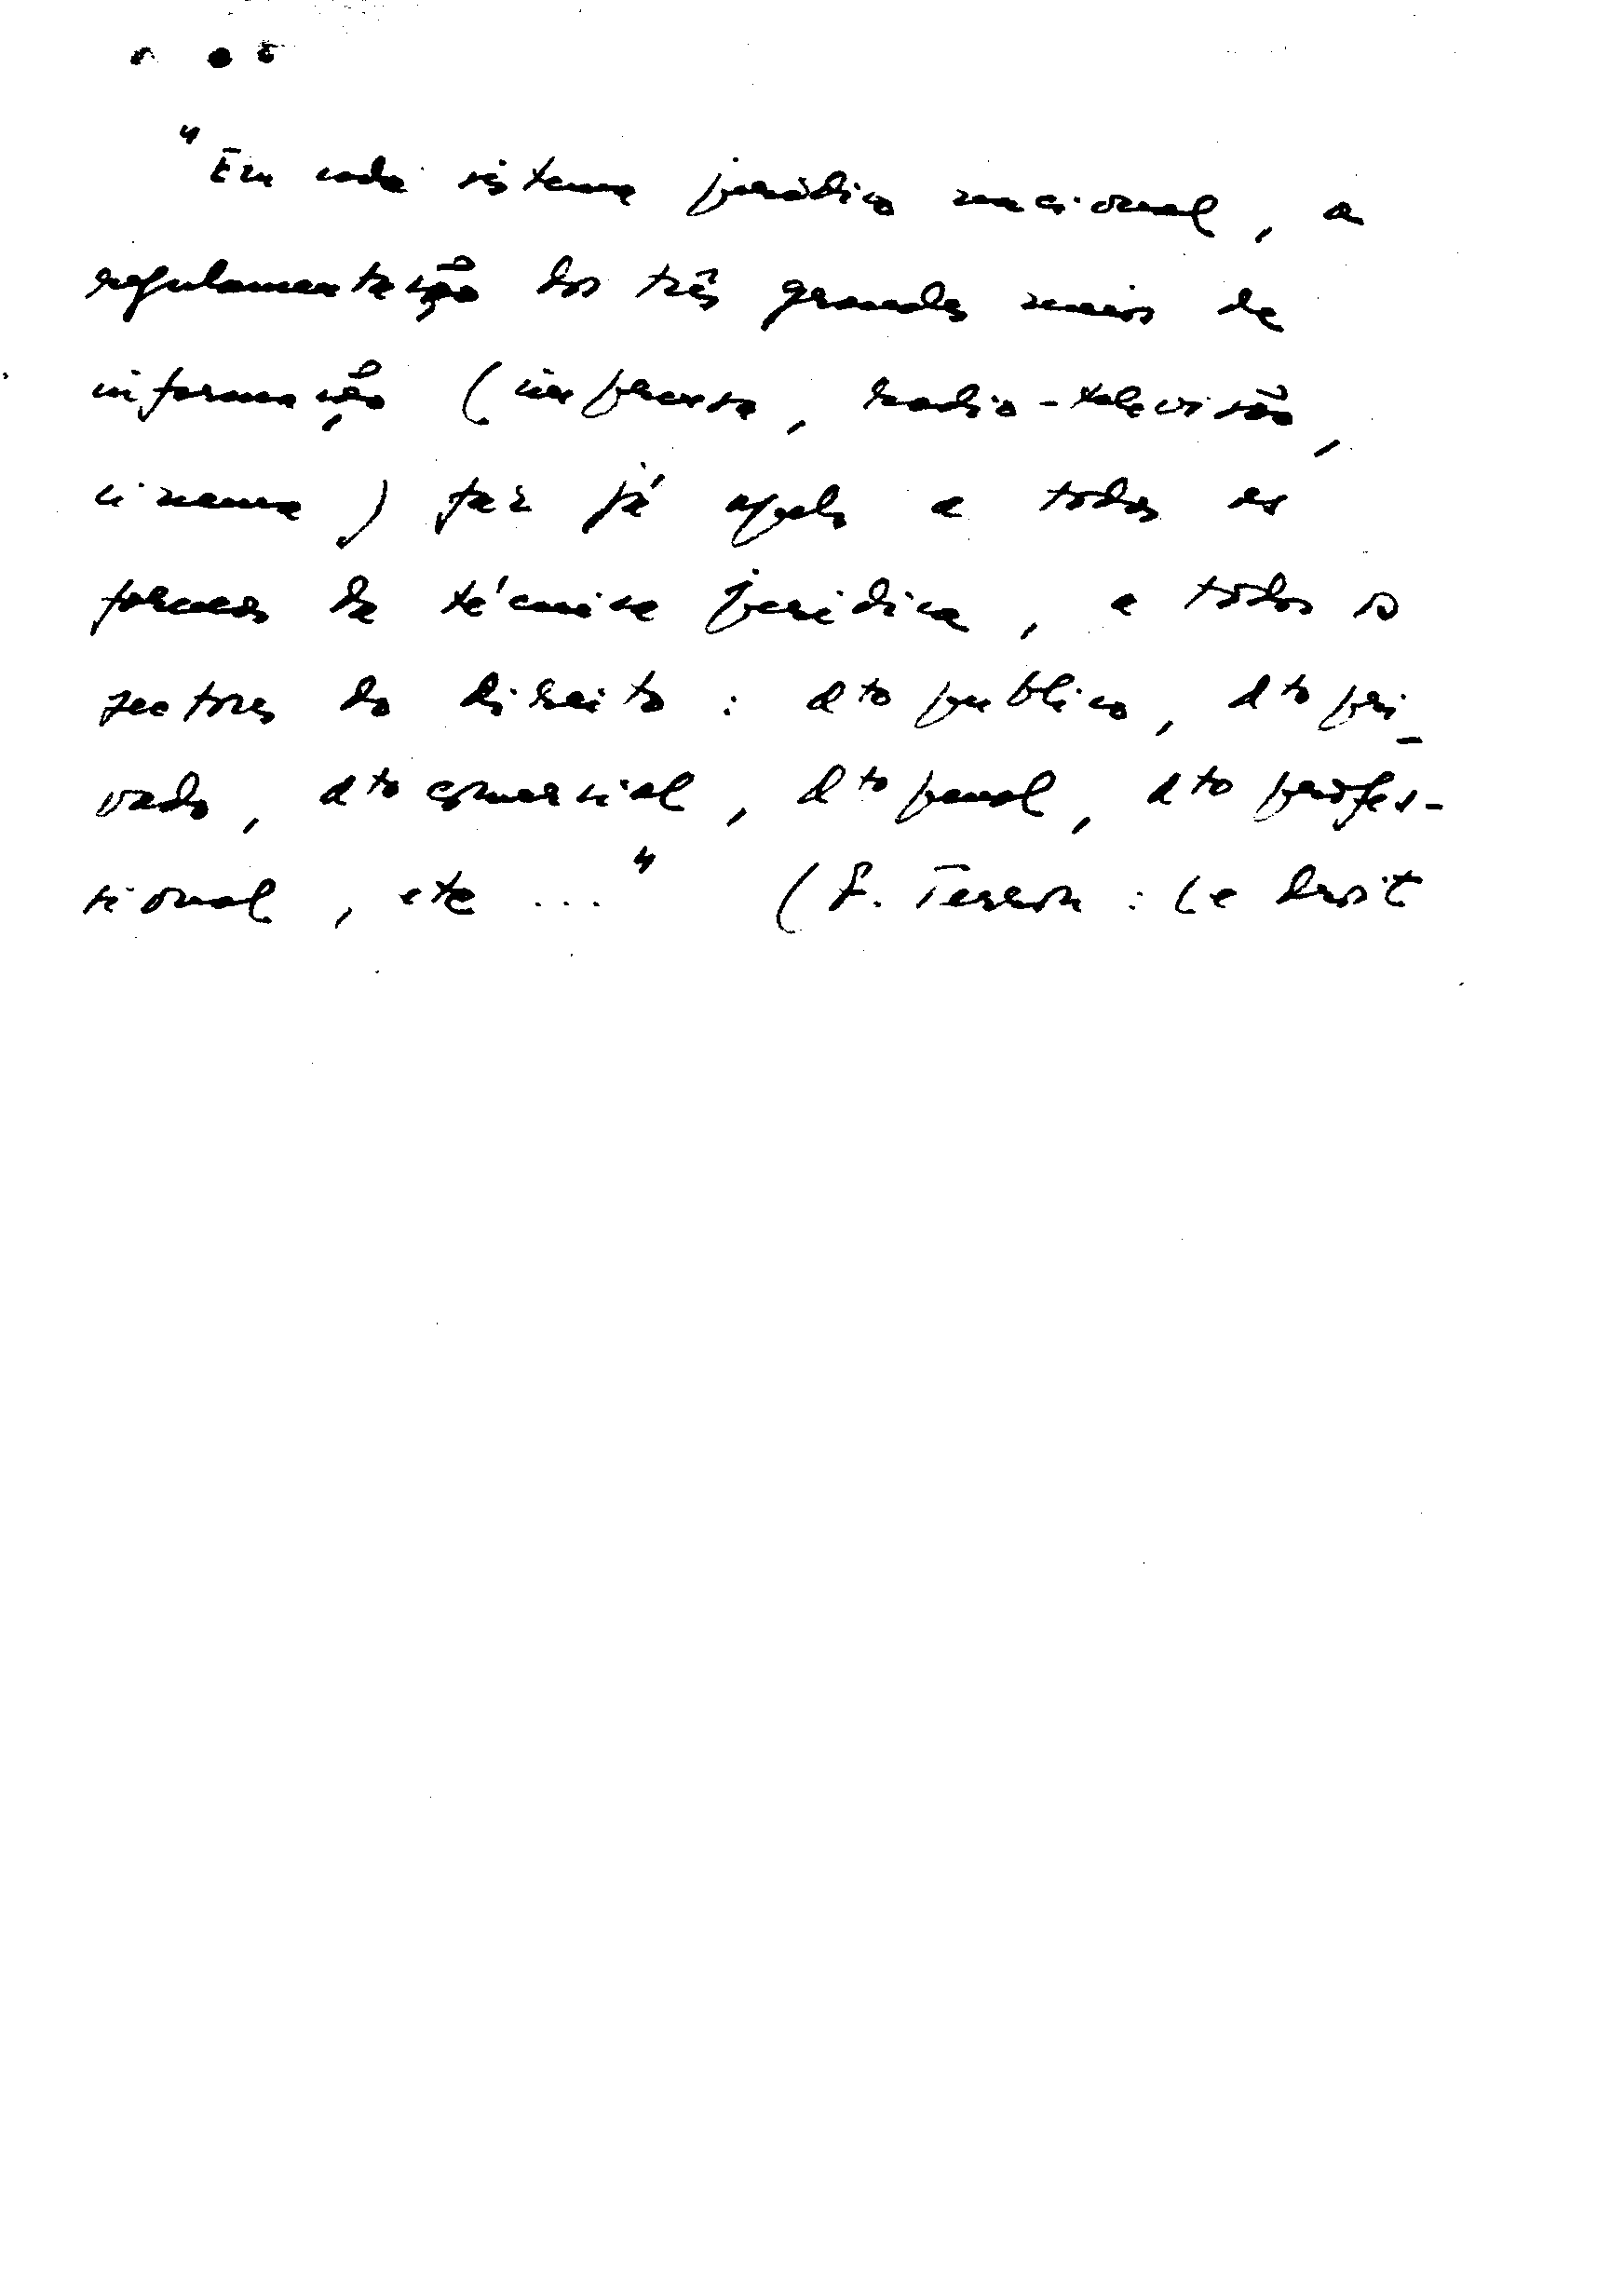 "Em cada sistema jurídico nacional, a
regulamentação dos três grandes meios de
informação (imprensa, radio-televisão,
cinema) faz já apelo a todas as
formas da técnica jurídica, a todos os
sectores do direito : dto publico, dto pri-
vado, dto comercial, dto penal, dto profes-
sional, etc ..." (F. Terrou : Le Droit